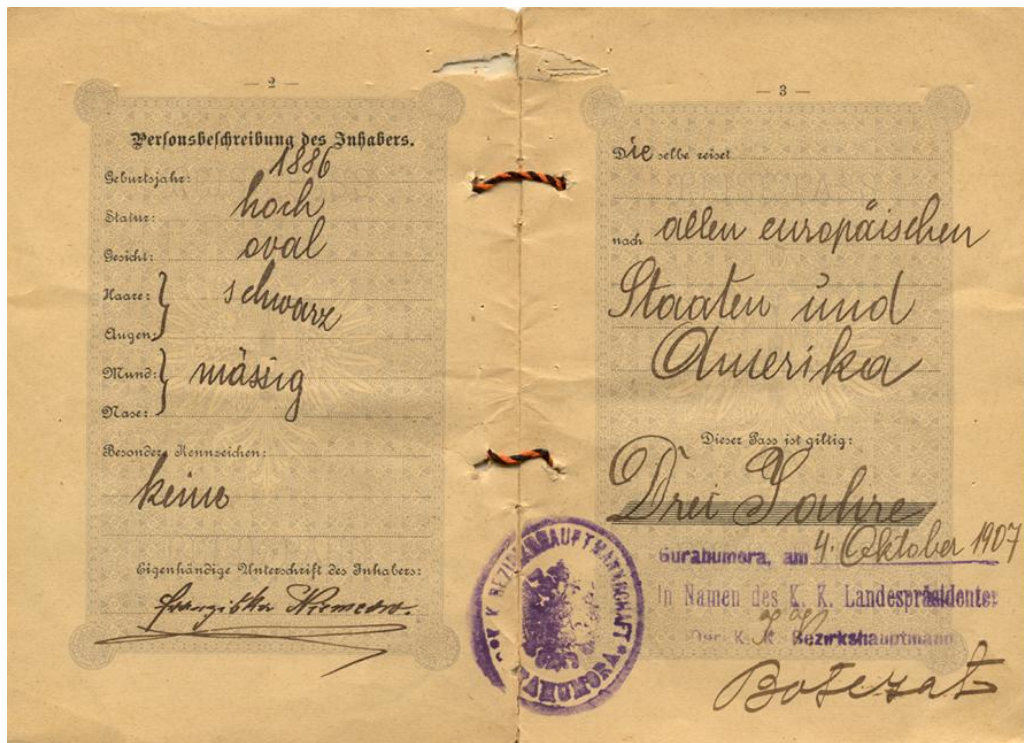 — 2 —
Personsbeschreibung des Inhabers.
Geburtsjahr: 1886
Statur: hoch
Gesicht: oval
Haare: } schwarz
Augen:
Mund: } mässig
Nase:
Besondere Kennzeichen:
keine
Eigenhändige Unterschrift des Inhabers:
Franziska
— 3 —
Dieselbe reiset
nach allen europäischen
Staaten und
Amerika
Dieser Pass ist giltig:
Drei Jahre
Gurahumora, am 4. Oktober 1907
In Namen des K. K. Landespräsidenten
Der K. K. Bezirkshauptmann
Botezat
K. K. BEZIRKSHAUPTMANNSCHAFT